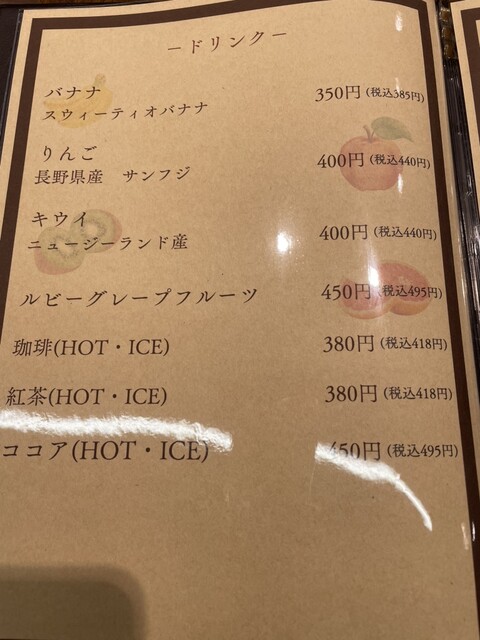 －ドリンク－
バナナ 350円(税込385円)
スウィーティオバナナ
りんご 400円(税込440円)
長野県産 サンフジ
キウイ 400円(税込440円)
ニュージーランド産
ルビーグレープフルーツ 450円(税込495円)
珈琲(HOT・ICE) 380円(税込418円)
紅茶(HOT・ICE) 380円(税込418円)
ココア(HOT・ICE) 450円(税込495円)